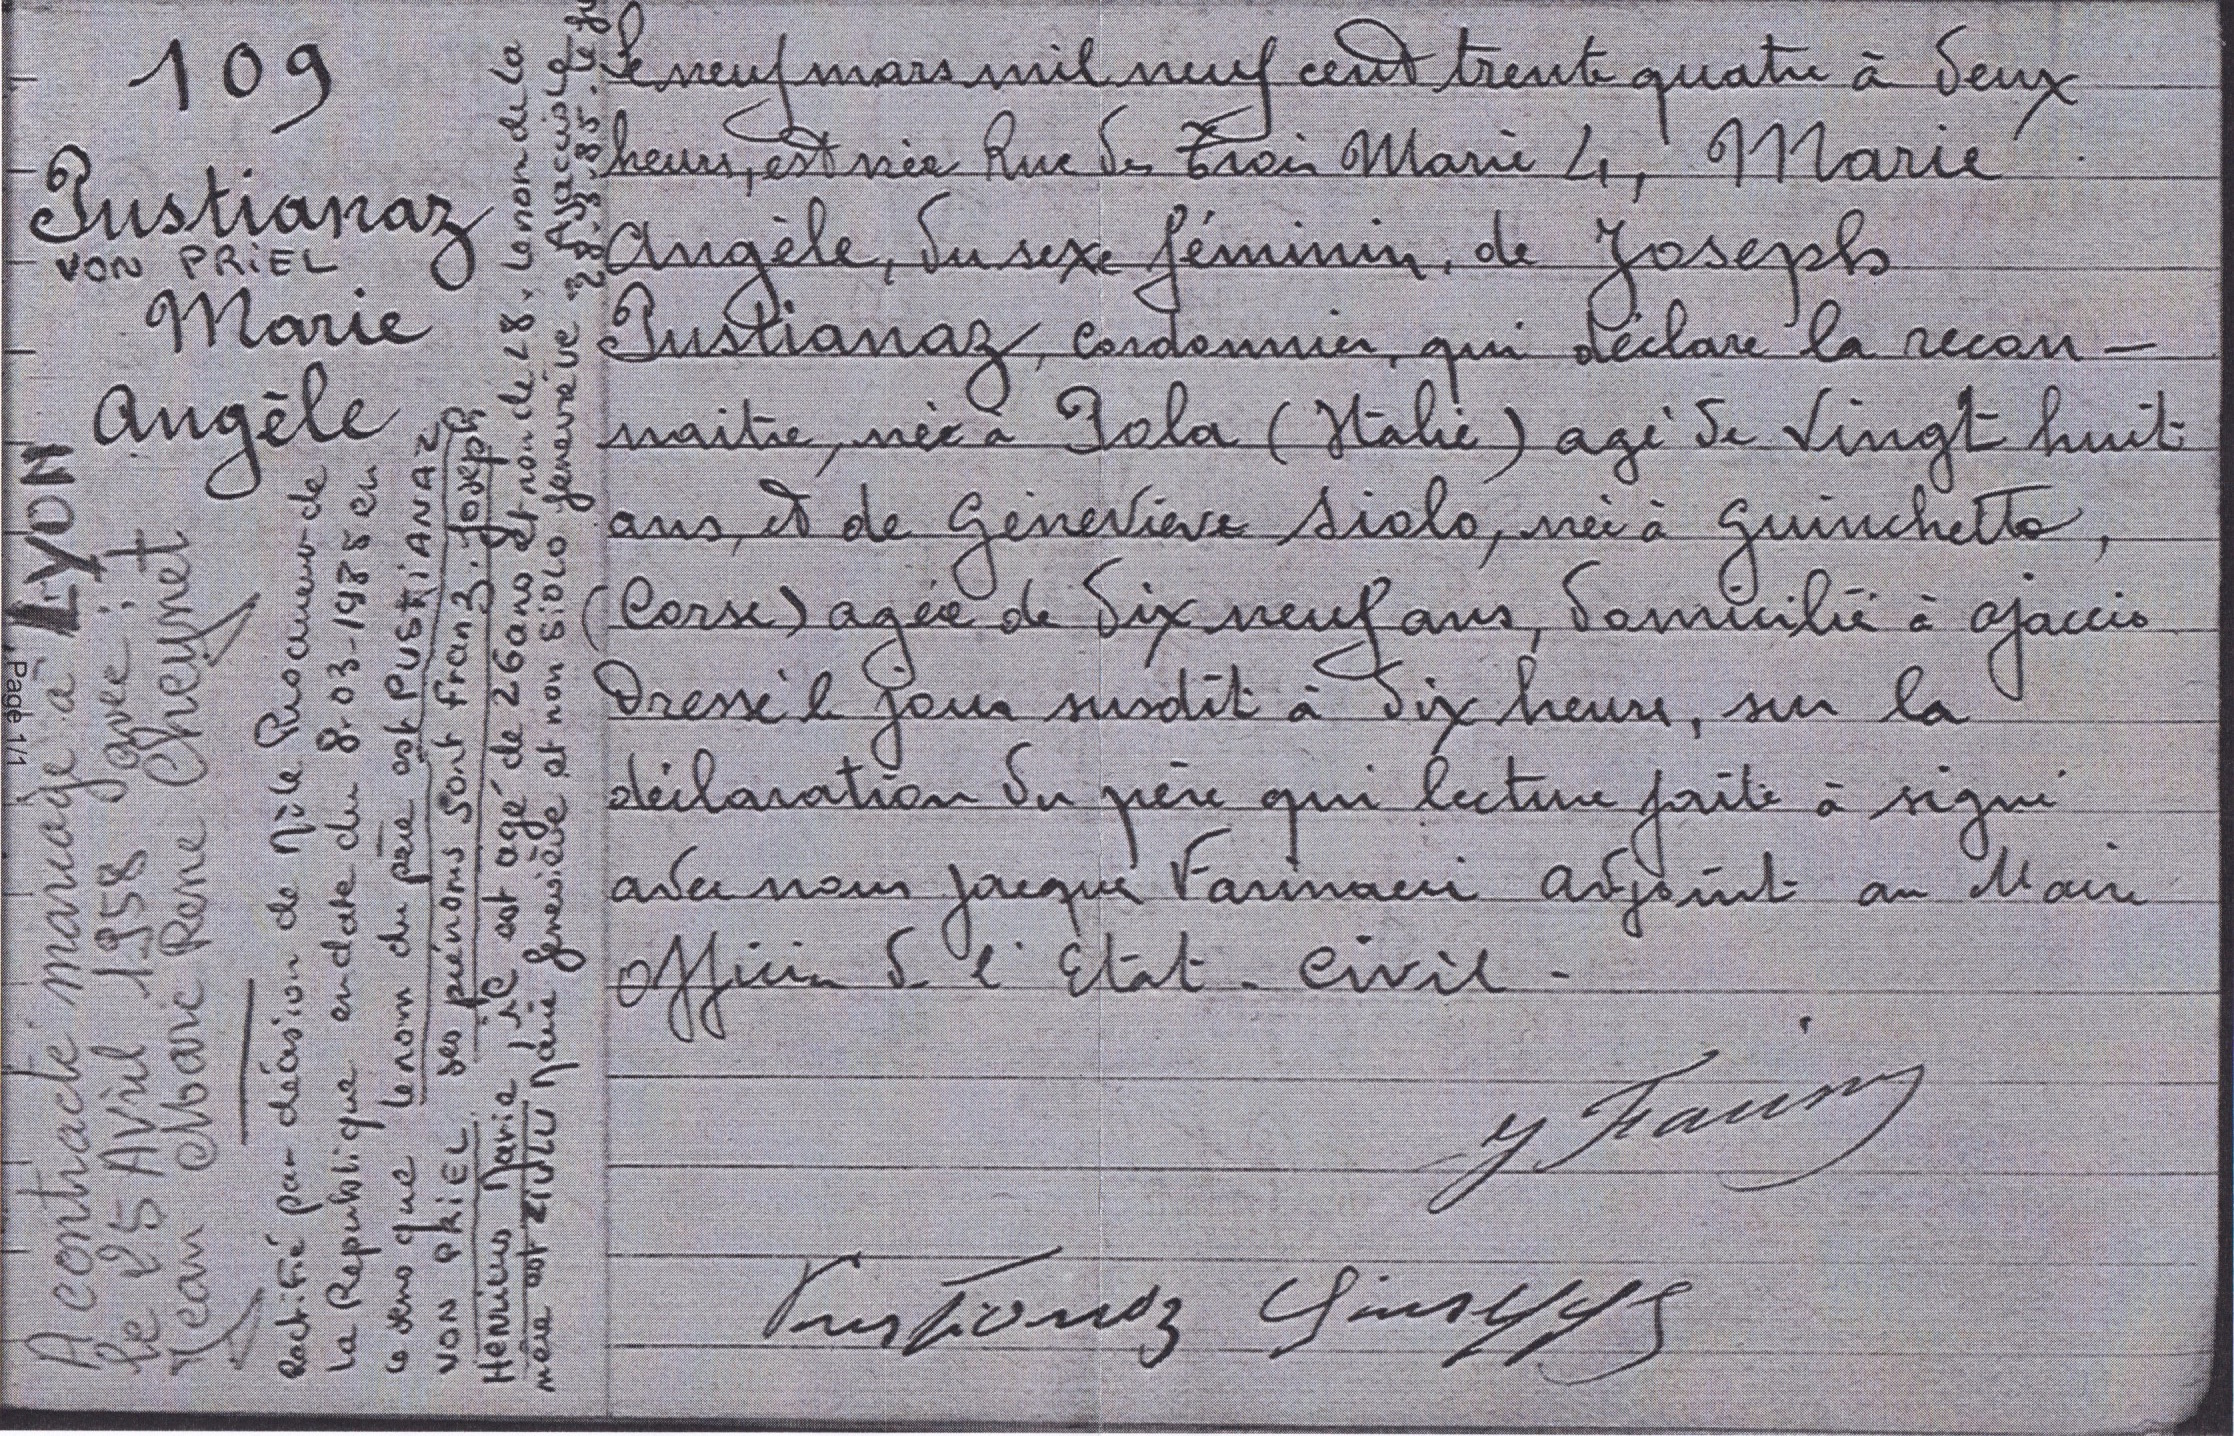 109
Pustianaz
VON PRIEL
Marie
Angèle
A contracté mariage à LYON
le 25 Avril 1958 avec :
Jean Marie René Cheynet
Rectifié par décision de Mr le Procureur de
la République en date du 8-03-1985 en
ce sens que le nom du père est PUSTIANAZ
VON PRIEL ses prénoms sont Franz. Joseph
Henricus Marie, il est agé de 26 ans et non de 28, le nom de la
mère est ZIVLU Marie Geneviève et non SIOLO Geneviève. Ajaccio le
28.3.85. le
Le neuf mars mil neuf cent trente quatre à deux
heures, est née Rue des Trois Marie 4, Marie
Angèle, du sexe féminin, de Joseph
Pustianaz, cordonnier, qui déclare la recon-
naitre, née à Pola (Italie) agé de vingt huit
ans, et de Géneviève Siolo, née à Guinchetto,
(Corse) agée de dix neuf ans, domicilié à Ajaccio
Dressé le jour susdit à dix heures, sur la
déclaration du père qui lecture faite à signé
avec nous Jacques Farinacci Adjoint au Maire
Officier de l'Etat-Civil -
Pustianaz Giuseppe
Page 1/1